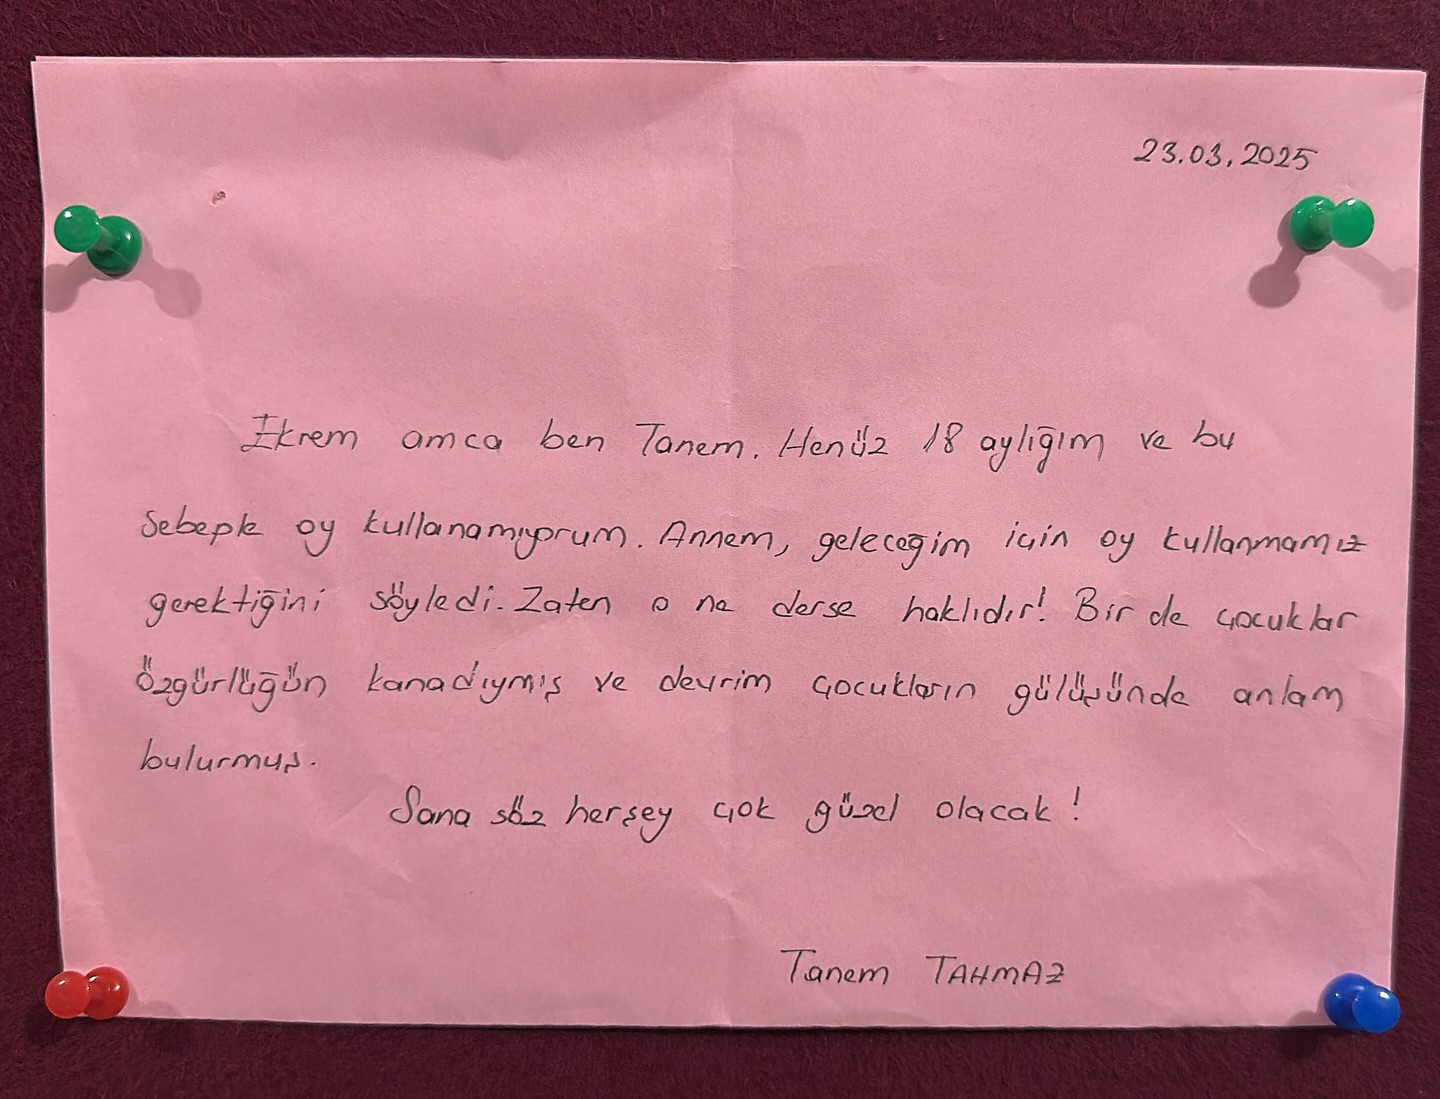 23.03.2025
İkrem amca ben Tanem. Henüz 18 aylığım ve bu
sebeple oy kullanamıyorum. Annem, geleceğim için oy kullanmamız
gerektiğini söyledi. Zaten o ne derse haklıdır! Bir de çocuklar
özgürlüğün kanadıymış ve devrim çocukların gülüşünde anlam
bulurmuş.
Sana söz herşey çok güzel olacak!
Tanem TAHMAZ